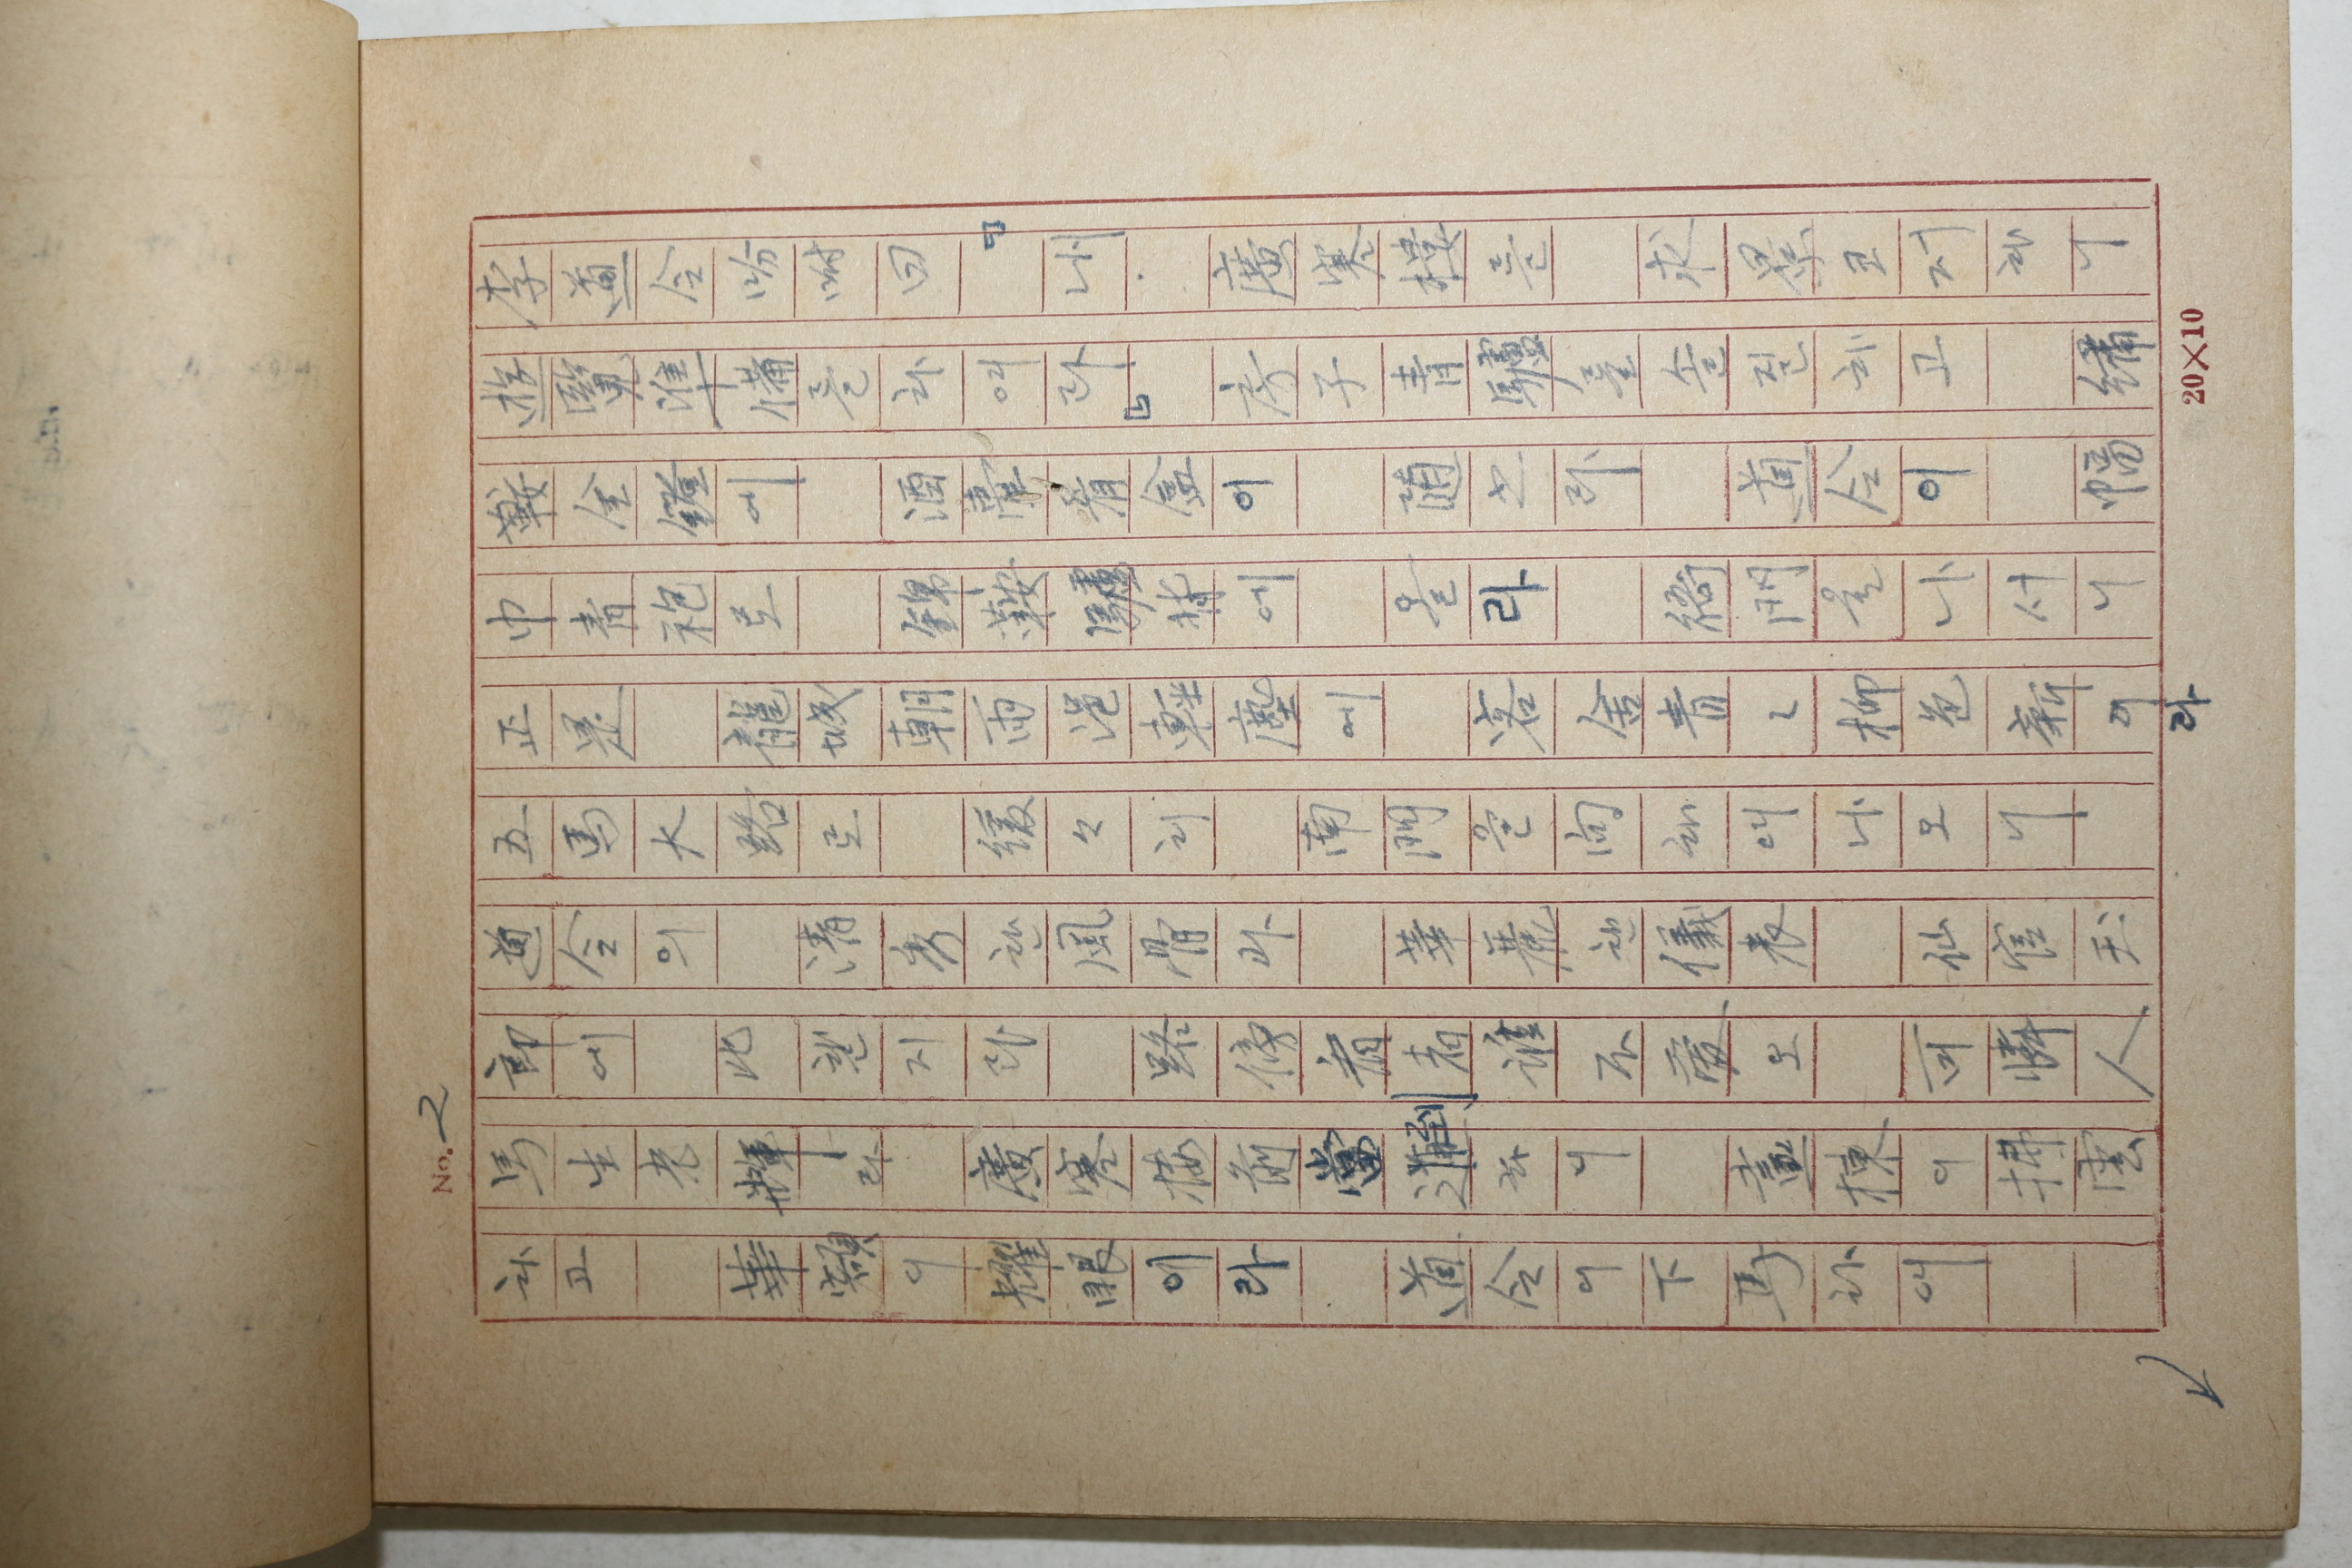 No. 2
李道令吩咐曰 「내 廣寒樓를 求景코저하니
遊覽準備를하여라」 房子青驢를 솔질하고 繡
鞍金鐙에 酒囊肴盒이 随으라 道令이 幅
巾青袍로 錦鞍驢背에 올라 衙門을나서니
正是 龍城朝雨浥輕塵에 客舍青〻柳色新이라
五馬大路로 緩々히 南門을向해여나오니
道令의 清秀한風骨과 華麗한儀表 仙官玉
郎에 比할지라 路傍看者誰不愛오 可憐人
馬生光輝라 廣寒楼前當到하니 畫棟이拂雲
하고 華額이耀眼이라 道令이下馬하여
20×10